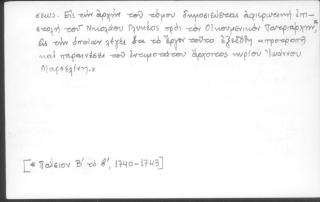 σεως. Εἰς τὴν ἀρχὴν τοῦ τόμου δημοσιεύεται ἀφιερωτικὴ ἐπι-
στολὴ τοῦ Νικολάου Γλυκέος πρὸς τὸν Οἰκουμενικὸν Πατριάρχην*,
εἰς τὴν ὁποίαν λέγει ὅτι τὸ ἔργον τοῦτο ἐξεδόθη «προτροπῇ
καὶ παραινέσει τοῦ ἐντιμοτάτου ἄρχοντος κυρίου Ἰωάννου
[* Παΐσιον Β′ τὸ β′, 1740-1743]